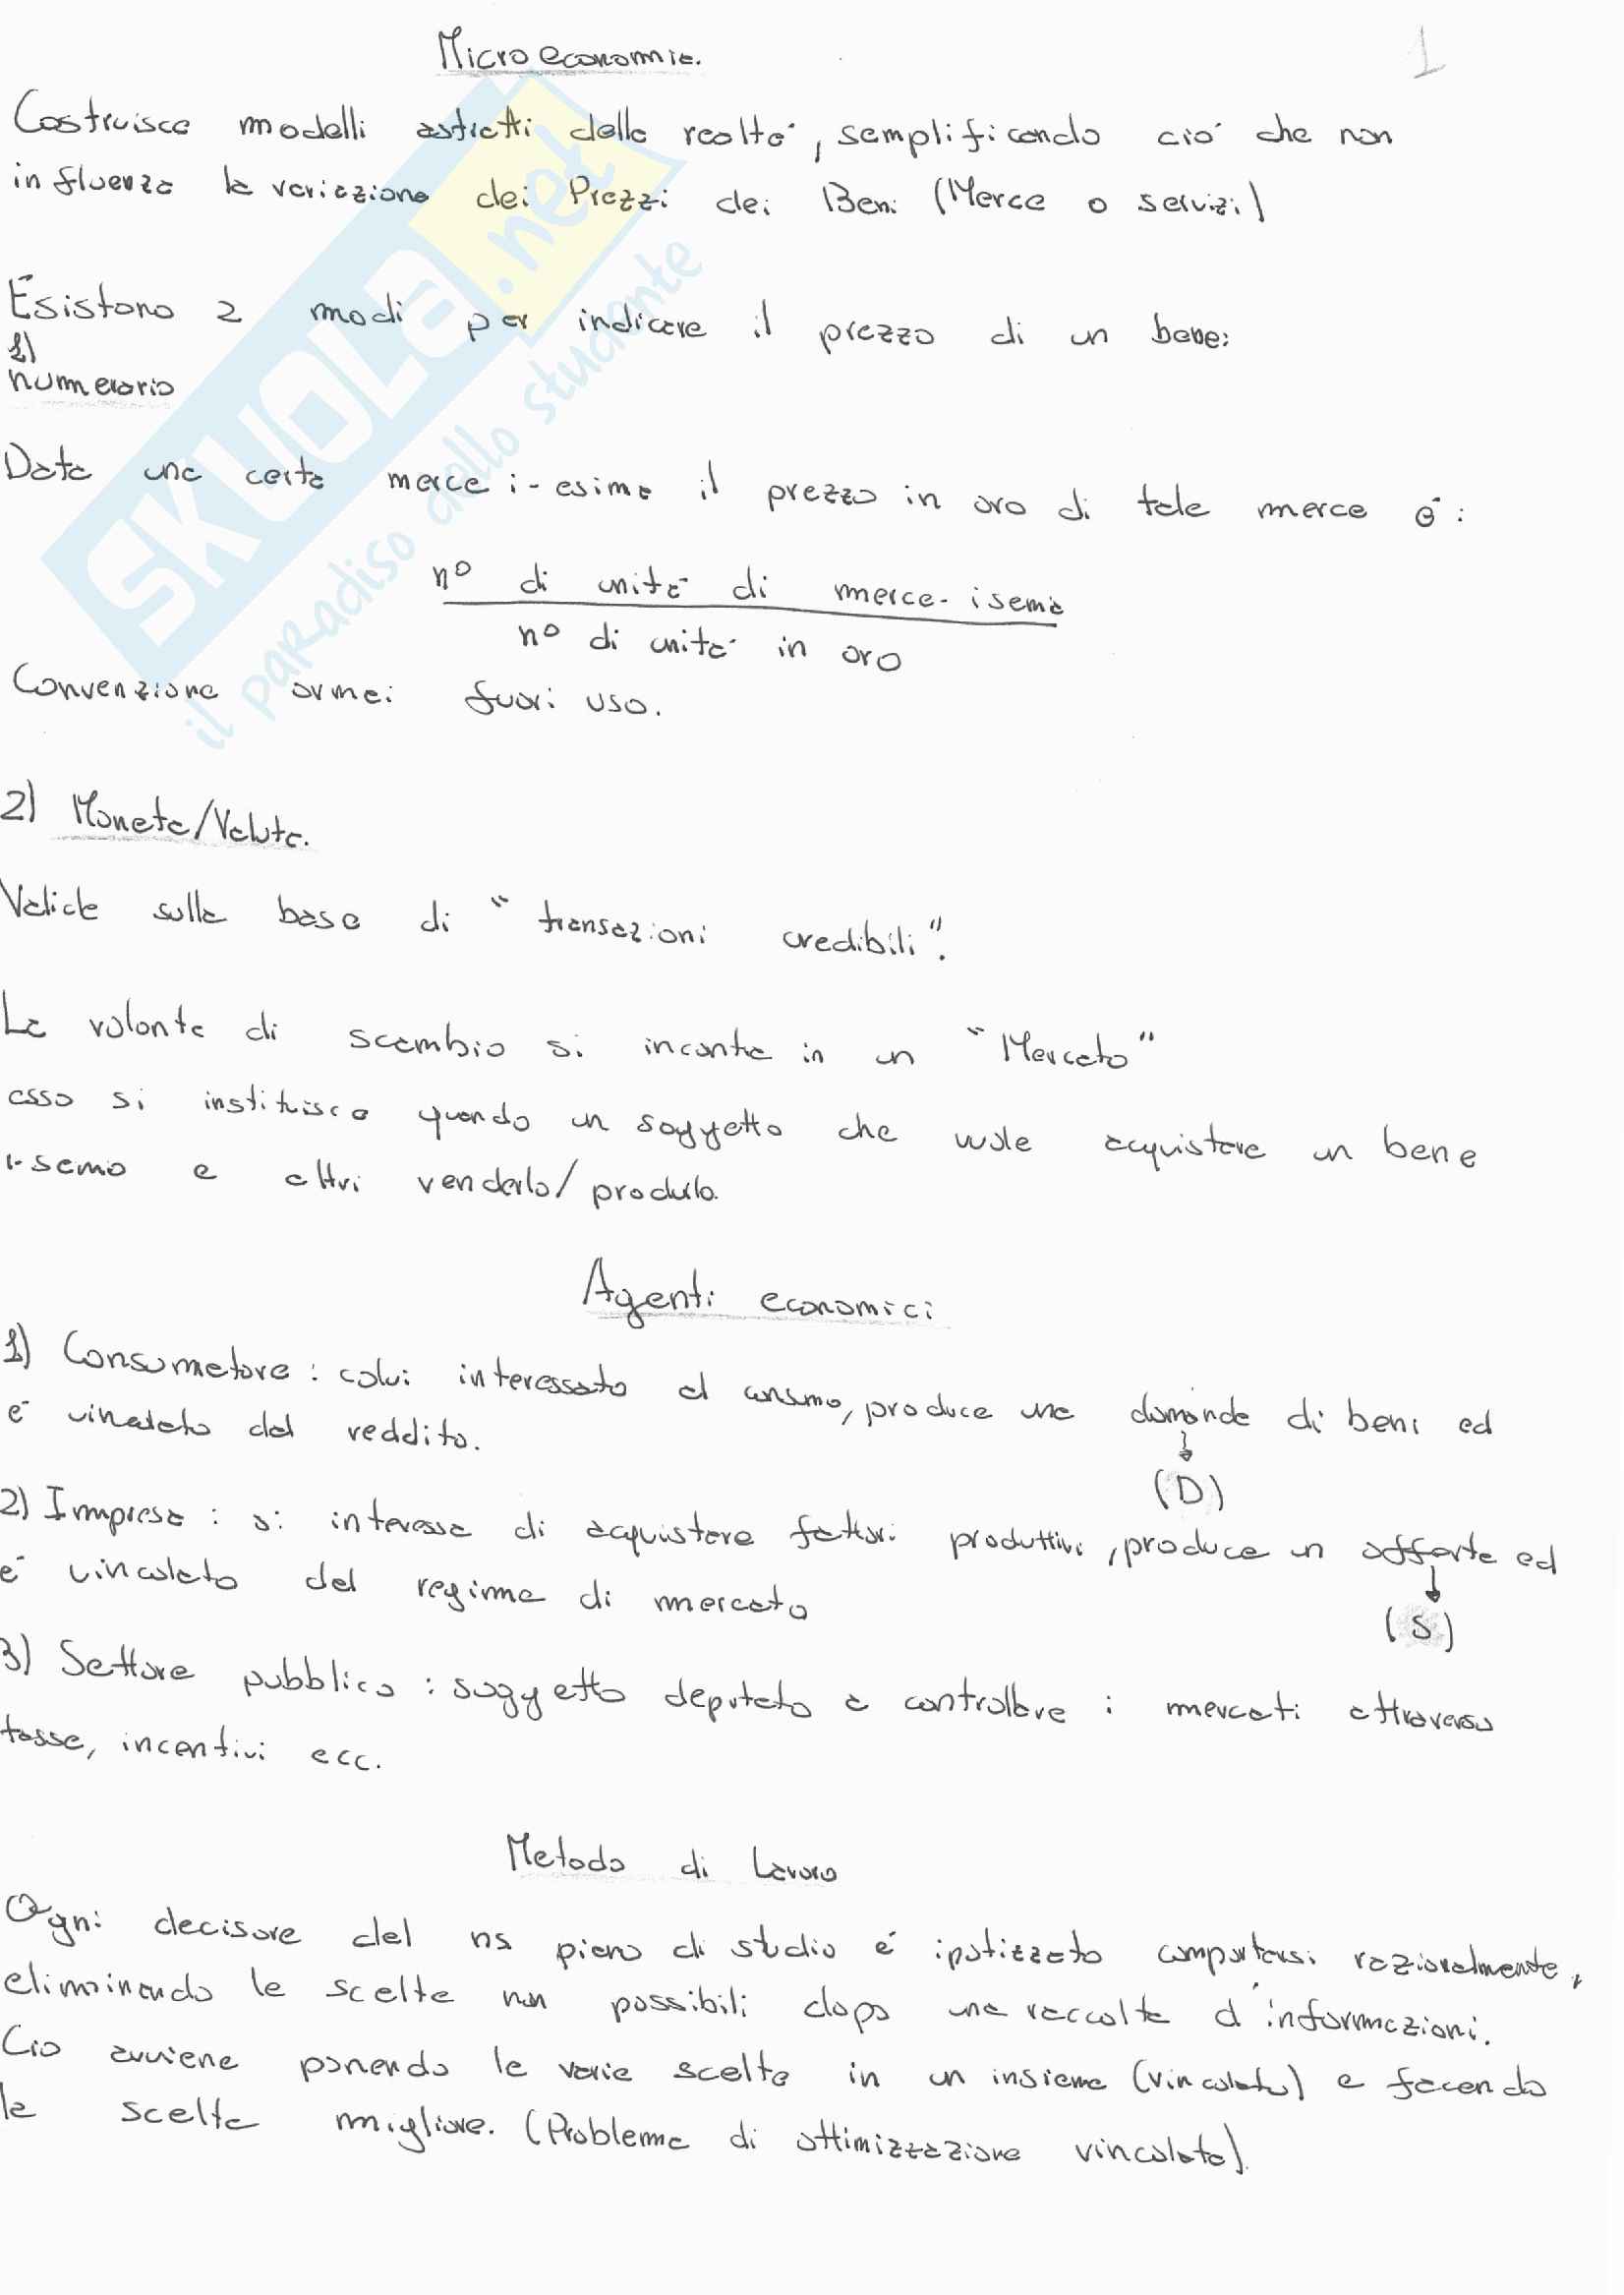 Microeconomia.
1
Costruisce modelli astratti della realtà, semplificando ciò che non
influenza la variazione dei Prezzi dei Beni (Merce o servizi)
Esistono 2 modi per indicare il prezzo di un bene:
1)
numerario
Data una certa merce i-esima il prezzo in oro di tale merce è:
n° di unità di merce-isema
n° di unità in oro
Convenzione ormai fuori uso.
2) Moneta/Valuta.
Valida sulla base di "transazioni credibili".
La volonta di scambio si incontra in un "Mercato"
esso si instituisce quando un soggetto che vuole acquistare un bene
i-semo e altri venderlo/produrlo.
Agenti economici
1) Consumatore: colui interessato al consumo, produce una domanda di beni ed
è vincolato dal reddito.
(D)
2) Impresa: si interessa di acquistare fattori produttivi, produce un offerta ed
è vincolato dal regime di mercato
(S)
3) Settore pubblico: soggetto deputato a controllare i mercati attraverso
tasse, incentivi ecc.
Metodo di Lavoro
Ogni decisore del ns piano di studio è ipotizzato comportarsi razionalmente,
eliminando le scelte non possibili dopo una raccolta d'informazioni.
Cio avviene ponendo le varie scelte in un insieme (vincolato) e facendo
la scelta migliore. (Problema di ottimizzazione vincolata).
SKUOLA.net
il paradiso dello studente